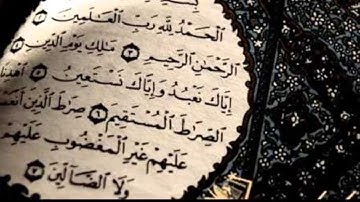 ٱلْحَمْدُ لِلَّهِ رَبِّ ٱلْعَٰلَمِينَ
ٱلرَّحْمَٰنِ ٱلرَّحِيمِ ٣ مَٰلِكِ يَوْمِ ٱلدِّينِ
إِيَّاكَ نَعْبُدُ وَإِيَّاكَ نَسْتَعِينُ ٥ ٱهْدِنَا
ٱلصِّرَٰطَ ٱلْمُسْتَقِيمَ ٦ صِرَٰطَ ٱلَّذِينَ أَنْعَمْتَ
عَلَيْهِمْ غَيْرِ ٱلْمَغْضُوبِ عَلَيْهِمْ
وَلَا ٱلضَّآلِّينَ ٧